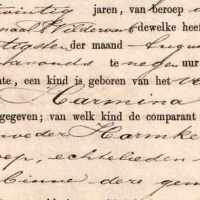 twintig jaren, van beroep
dewelke heef
tigsten der maand Augus
avonds te negen uur
te, een kind is geboren van het v
Harmina
gegeven; van welk kind de comparant
moeder Harmke
oep, echtelieden
binnen deze gem